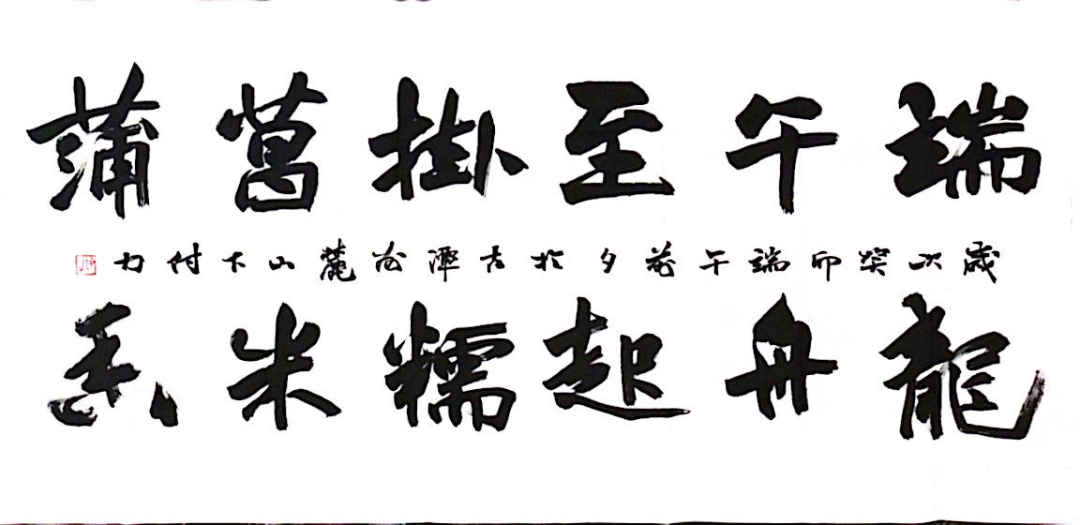 端午至掛菖蒲
歲次癸卯端午前夕於古潭岳麓山下付力
龍舟起糯米香